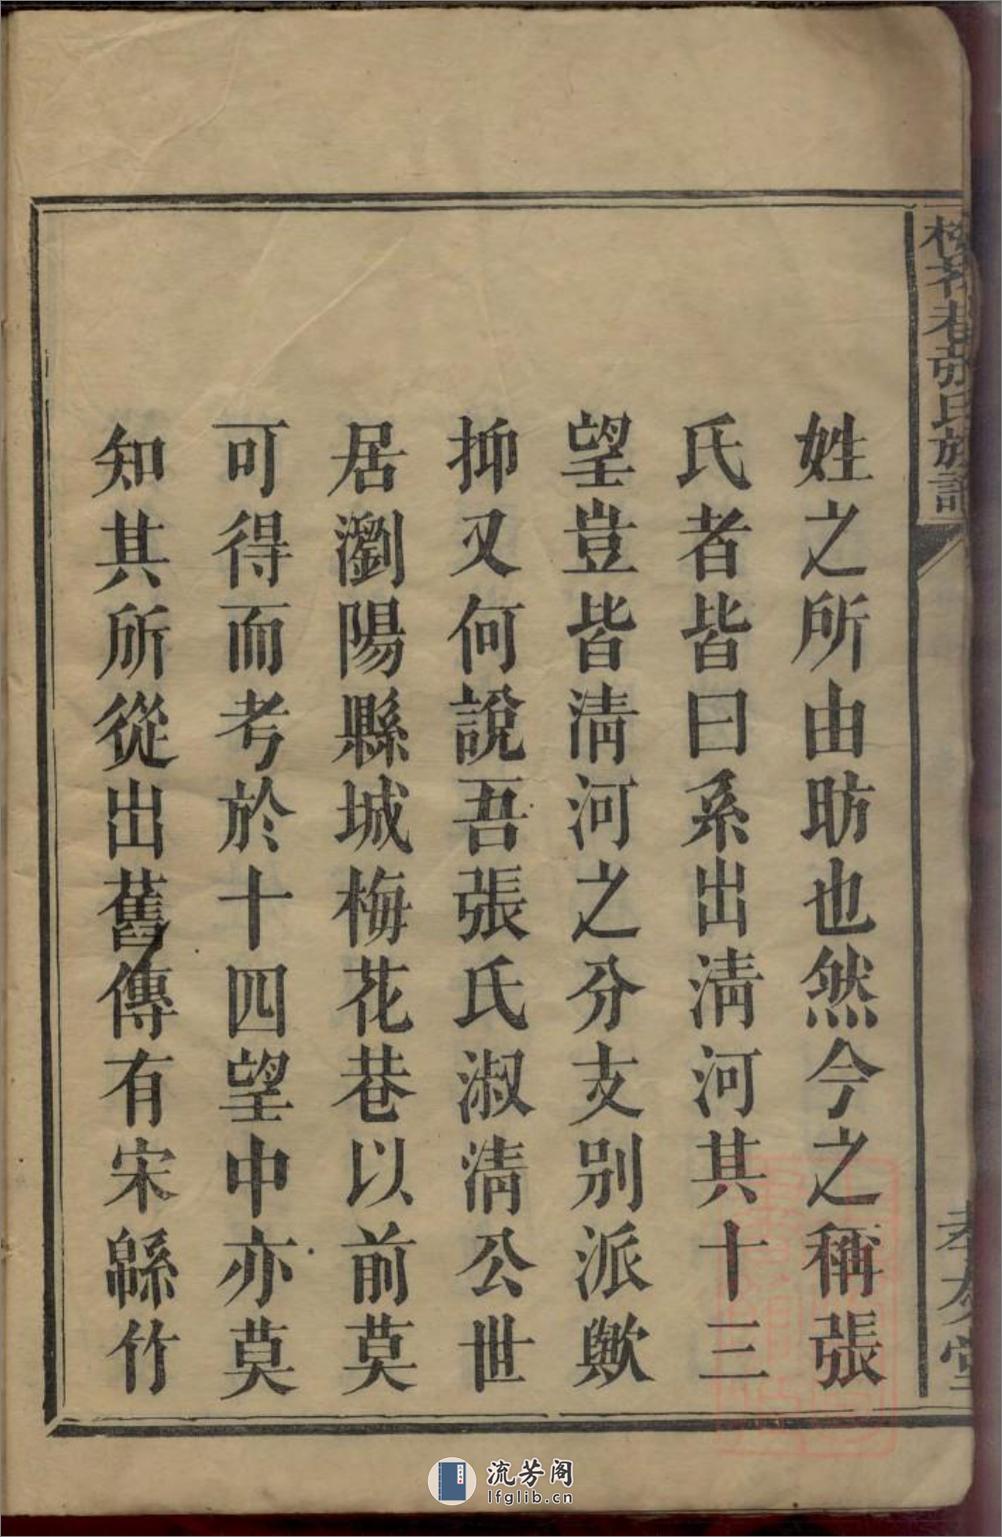 姓之所由昉也然今之稱張
氏者皆曰系出淸河其十三
望豈皆淸河之分支别派歟
抑又何說吾張氏淑淸公世
居瀏陽縣城梅花巷以前莫
可得而考於十四望中亦莫
知其所從出舊傳有宋緜竹
梅花巷張氏族譜
孝友堂
流芳阁
lfglib.cn